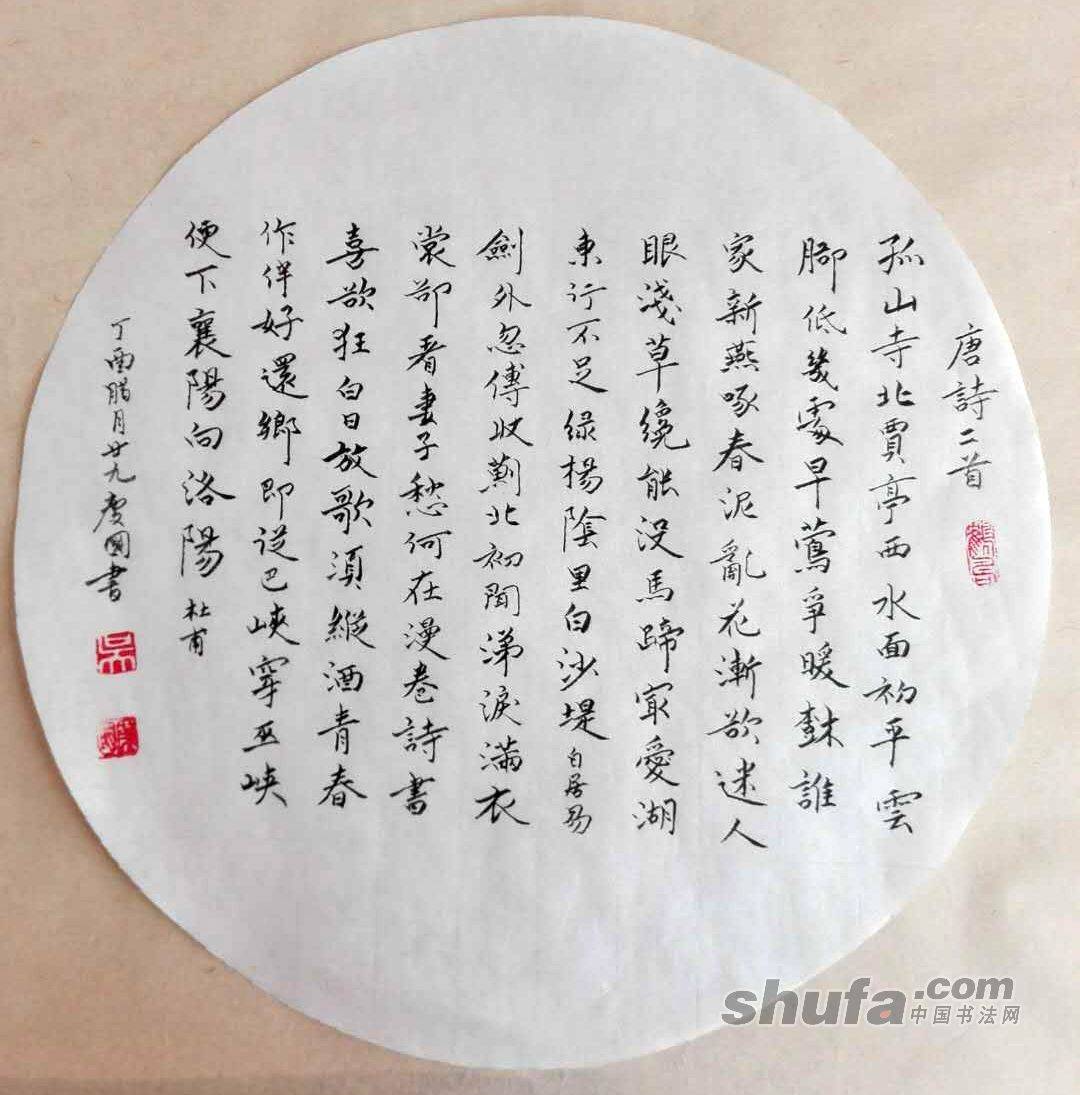 唐詩二首
孤山寺北賈亭西水面初平雲
腳低幾處早鶯爭暖樹誰
家新燕啄春泥亂花漸欲迷人
眼淺草纔能沒馬蹄冣愛湖
東行不足綠楊陰里白沙堤 白居易
劍外忽傳收薊北初聞涕淚滿衣
裳卻看妻子愁何在漫卷詩書
喜欲狂白日放歌須縱酒青春
作伴好還鄉即從巴峽穿巫峽
便下襄陽向洛陽 杜甫
丁酉腊月廿九慶國書
吴
shufa.com
中国书法网